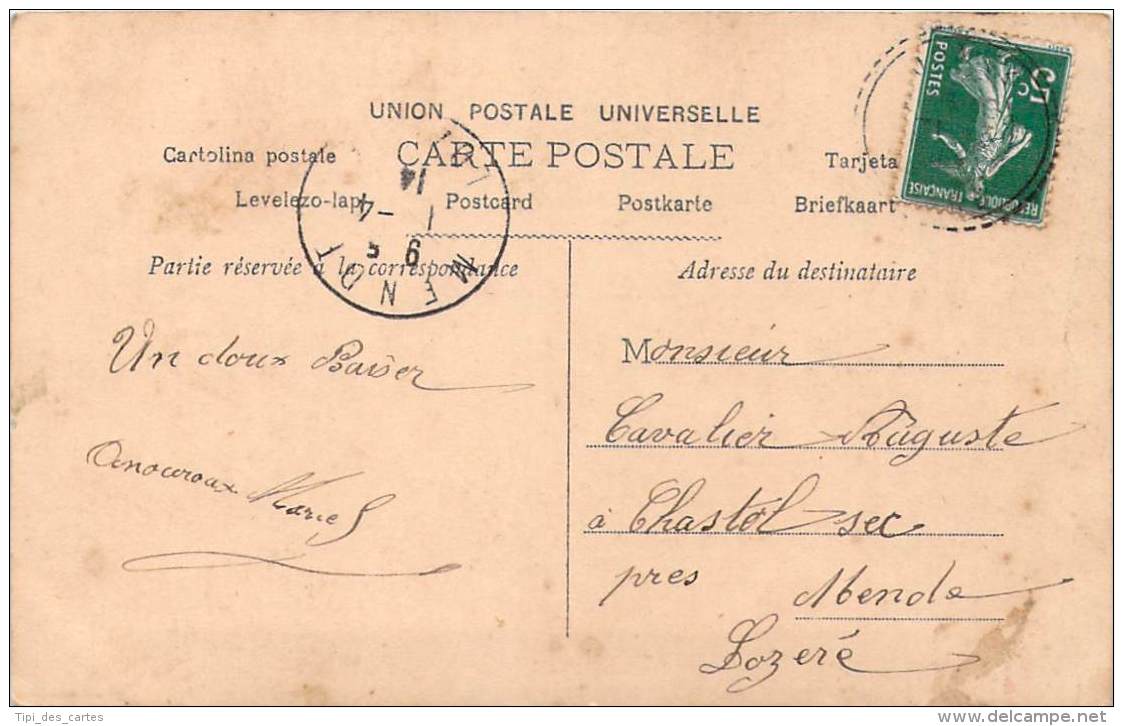 UNION POSTALE UNIVERSELLE
CARTE POSTALE
Cartolina postale
Tarjeta
Levelezo-lap
Postcard
Postkarte
Briefkaart
5 c
POSTES
REPUBLIQUE FRANÇAISE
14
-4
9
MENDE
Partie réservée à la correspondance
Adresse du destinataire
Un doux Baiser
Amouroux Marie S
Monsieur
Cavalier Auguste
à Chastel sec
pres Mende
Lozeré
Tipi_des_cartes
www.delcampe.net